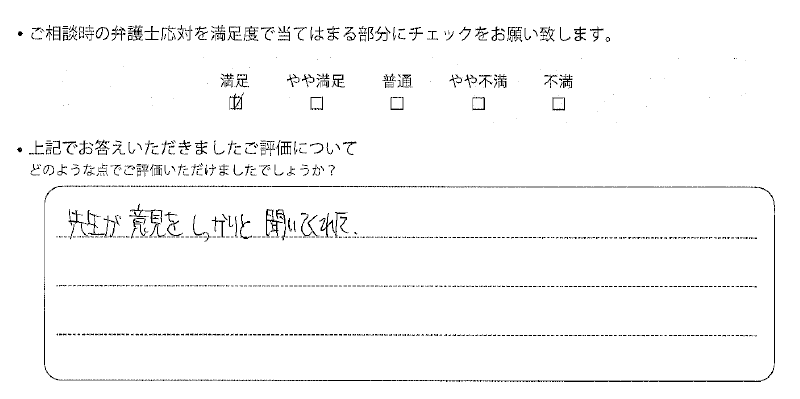 ・ご相談時の弁護士応対を満足度で当てはまる部分にチェックをお願い致します。
満足 やや満足 普通 やや不満 不満
☑ □ □ □ □
・上記でお答えいただきましたご評価について
どのような点でご評価いただけましたでしょうか？
先生が意見をしっかりと聞いてくれた.